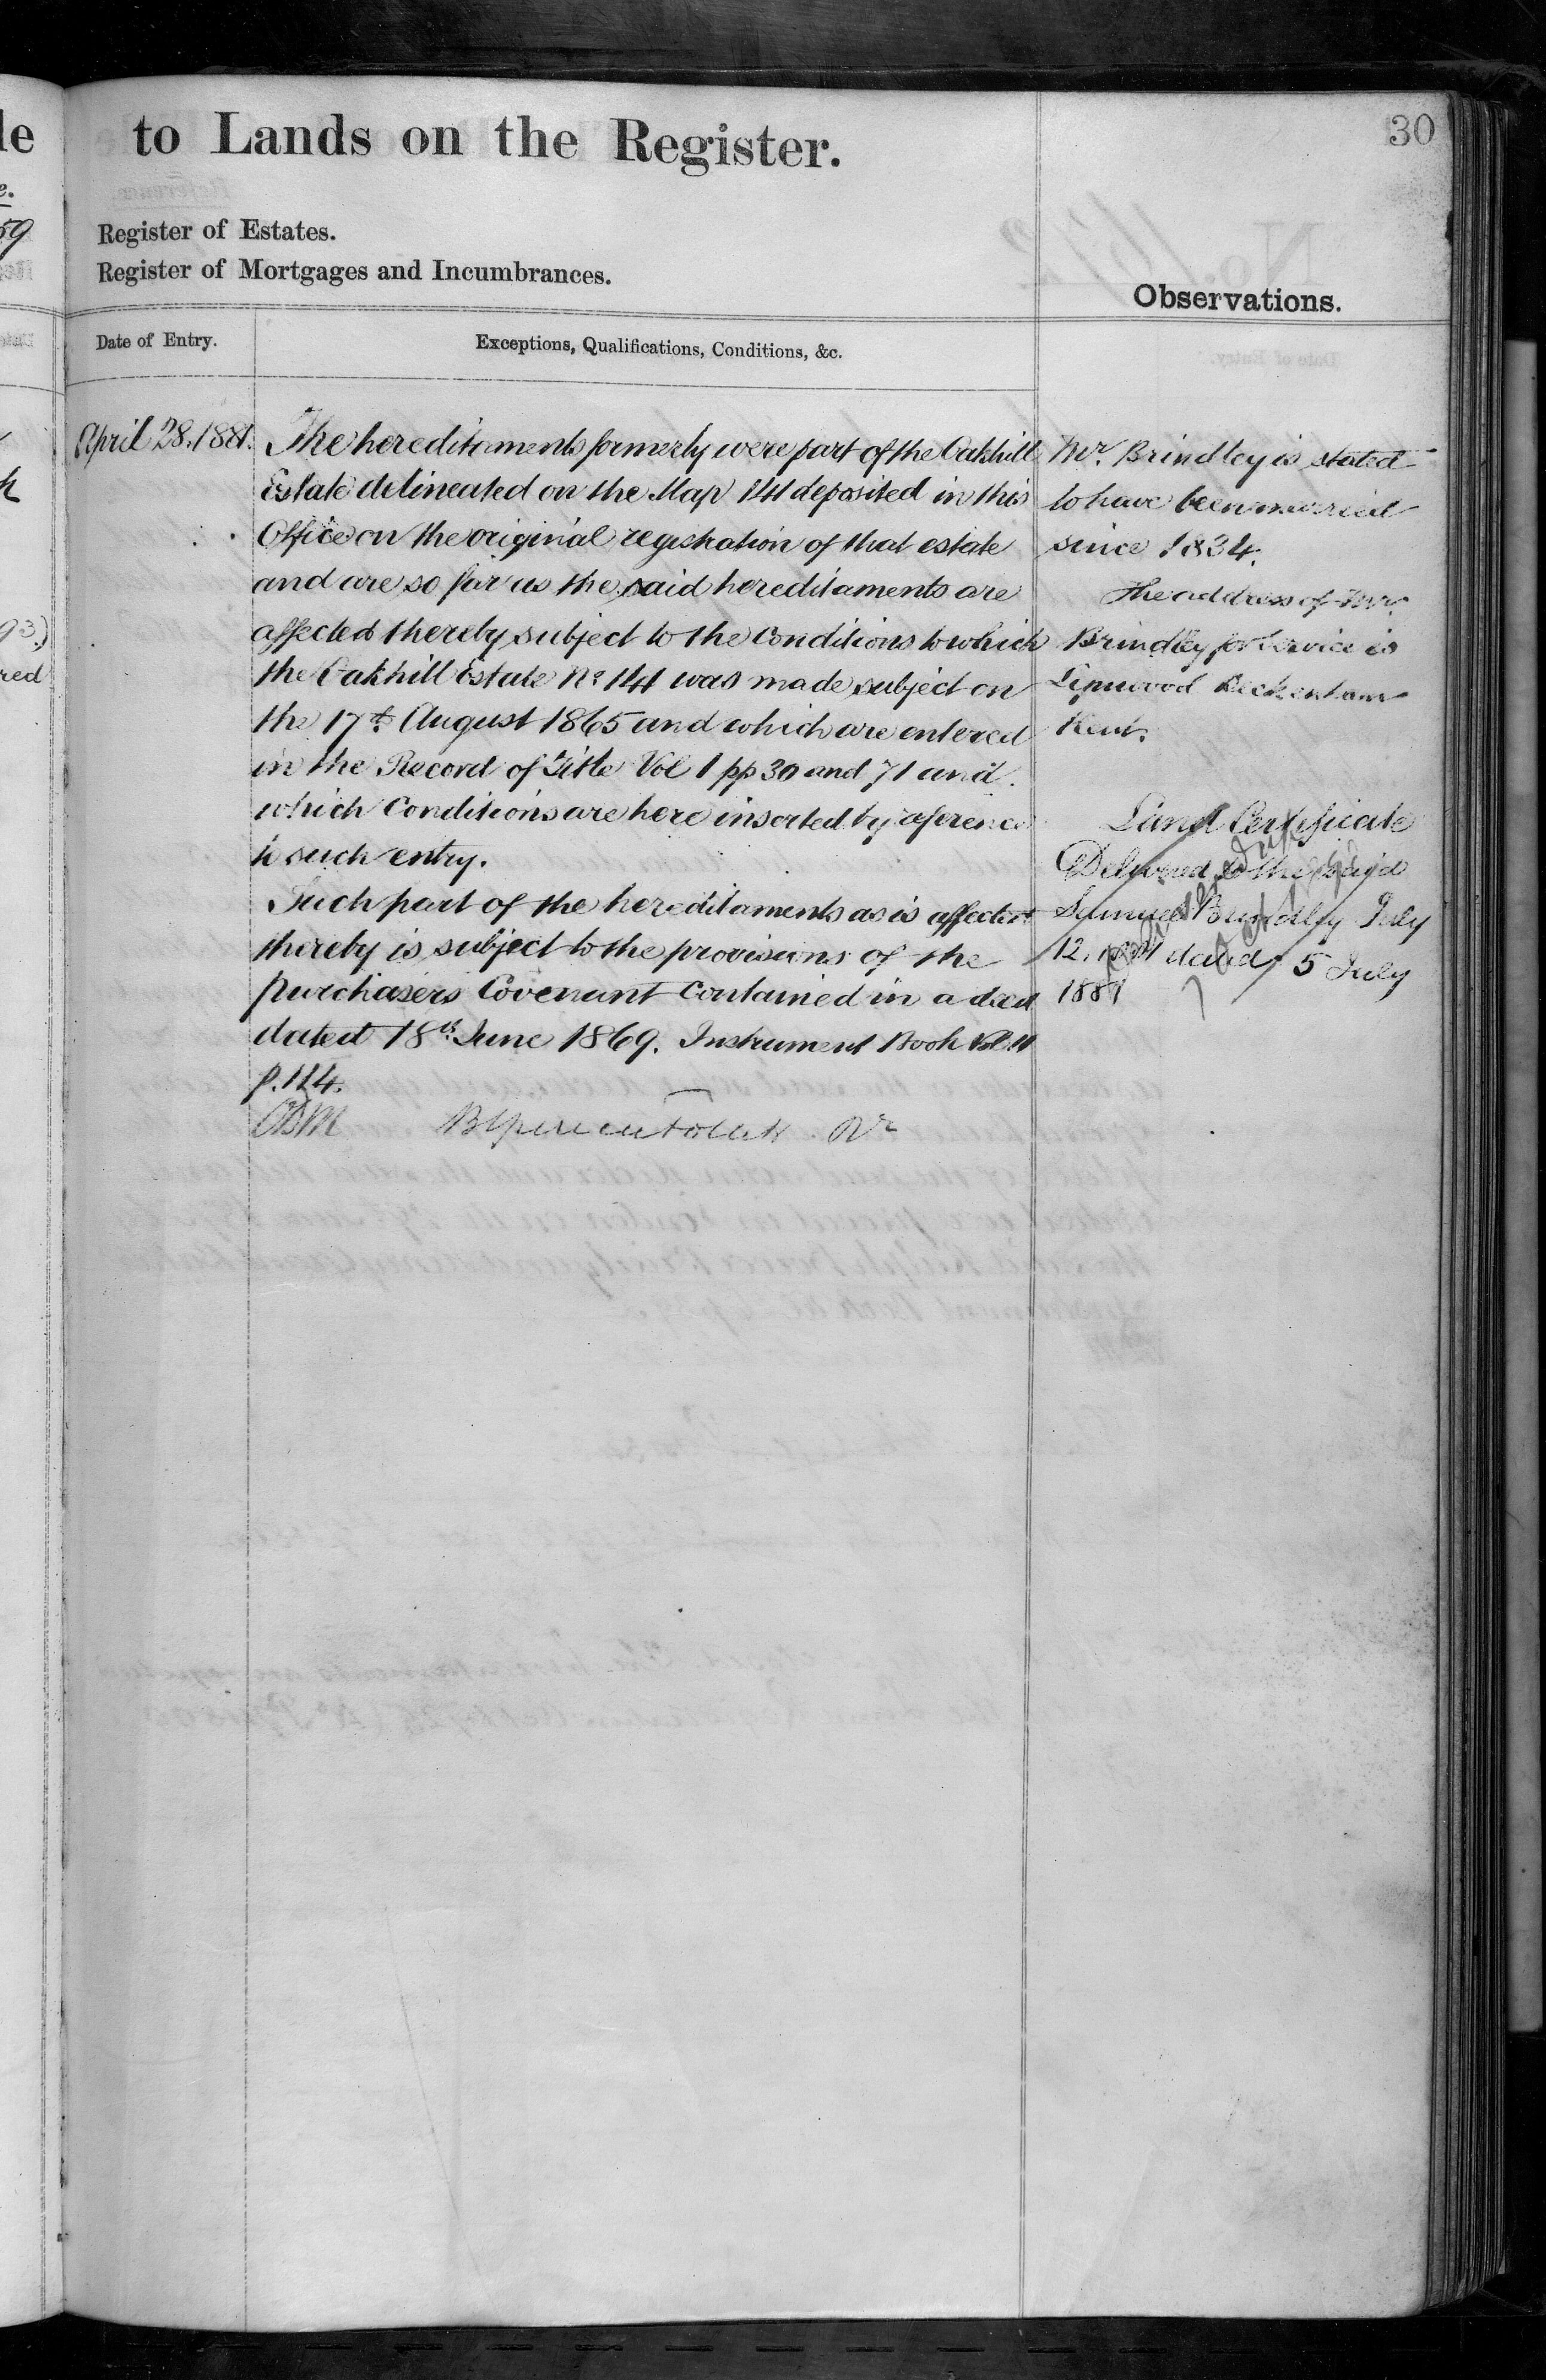 le
to Lands on the Register.
30
e.
59
Register of Estates.
Register of Mortgages and Incumbrances.
Observations.
Date of Entry.
Exceptions, Qualifications, Conditions, &c.
April 28. 1881.
The hereditaments formerly were part of the Oakhill
Estate delineated on the Map 141 deposited in this
Office on the original registration of that estate
and are so far as the said hereditaments are
affected thereby subject to the Conditions to which
the Oakhill Estate No 141 was made subject on
the 17th August 1865 and which are entered
in the Record of Title Vol 1 pp 30 and 71 and
which Conditions are here inserted by reference
to such entry.
Such part of the hereditaments as is affected
thereby is subject to the provisions of the
purchasers Covenant contained in a deed
dated 18th June 1869. Instrument Book Vol 11
p. 124.
Mr. Brindley is stated
to have been married
since 1834.
The address of Mr.
Brindley for Service is
Beckenham
Kent.
Land Certificate
Delivered to the said
Samuel Brindley July
12. 1881 dated 5 July
1881
93.)
red